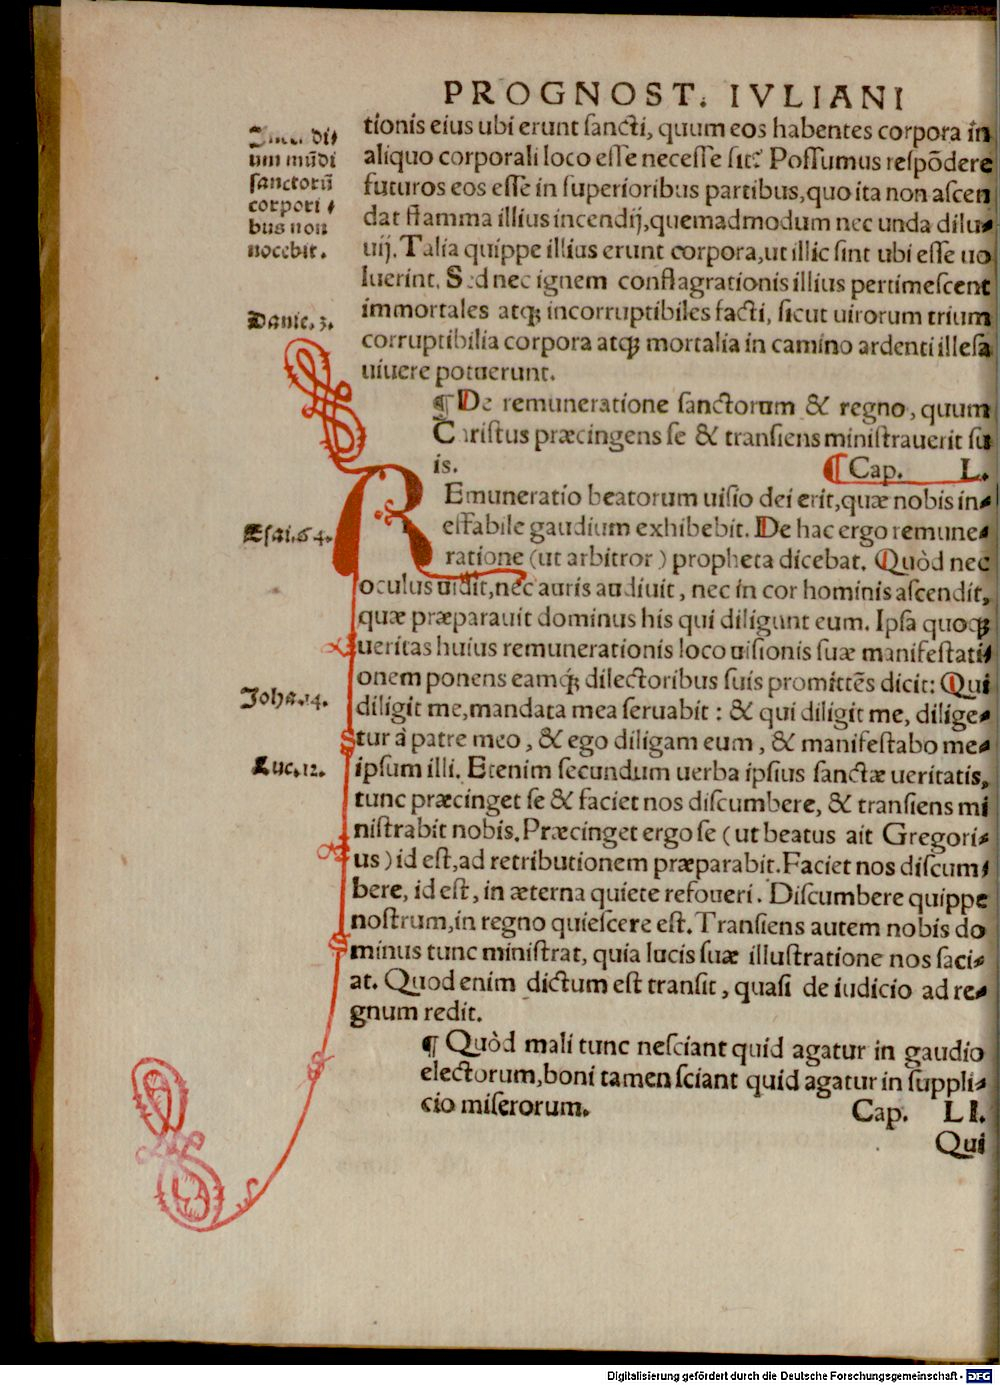 PROGNOST. IVLIANI
Incendi⸗
um mũdi
sanctorũ
corpori⸗
bus non
nocebit.
tionis eius ubi erunt sancti, quum eos habentes corpora in
aliquo corporali loco esse necesse sit? Possumus respõdere
futuros eos esse in superioribus partibus, quo ita non ascen
dat flamma illius incendij, quemadmodum nec unda dilu⸗
uij. Talia quippe illius erunt corpora, ut illic sint ubi esse uo
luerint. Sed nec ignem conflagrationis illius pertimescent
immortales atq; incorruptibiles facti, sicut uirorum trium
Danie. 3.
corruptibilia corpora atq; mortalia in camino ardenti illesa
uiuere potuerunt.
¶ De remuneratione sanctorum & regno, quum
Christus præcingens se & transiens ministrauerit su
is.
¶ Cap. L.
REmuneratio beatorum uisio dei erit, quæ nobis in⸗
Esai. 64.
effabile gaudium exhibebit. De hac ergo remune⸗
ratione (ut arbitror) propheta dicebat. Quòd nec
oculus uidit, nec auris audiuit, nec in cor hominis ascendit,
quæ præparauit dominus his qui diligunt eum. Ipsa quoq;
ueritas huius remunerationis loco uisionis suæ manifestati⸗
onem ponens eamq; dilectoribus suis promittẽs dicit: Qui
Joha. 14.
diligit me, mandata mea seruabit: & qui diligit me, dilige⸗
tur à patre meo, & ego diligam eum, & manifestabo me⸗
Luc. 12.
ipsum illi. Etenim secundum uerba ipsius sanctæ ueritatis,
tunc præcinget se & faciet nos discumbere, & transiens mi
nistrabit nobis. Præcinget ergo se (ut beatus ait Gregori⸗
us) id est, ad retributionem præparabit. Faciet nos discum⸗
bere, id est, in æterna quiete refoueri. Discumbere quippe
nostrum, in regno quiescere est. Transiens autem nobis do
minus tunc ministrat, quia lucis suæ illustratione nos saci⸗
at. Quod enim dictum est transit, quasi de iudicio ad re⸗
gnum redit.
¶ Quòd mali tunc nesciant quid agatur in gaudio
electorum, boni tamen sciant quid agatur in suppli⸗
cio miserorum. Cap. LI.
Qui
Digitalisierung gefördert durch die Deutsche Forschungsgemeinschaft - DFG